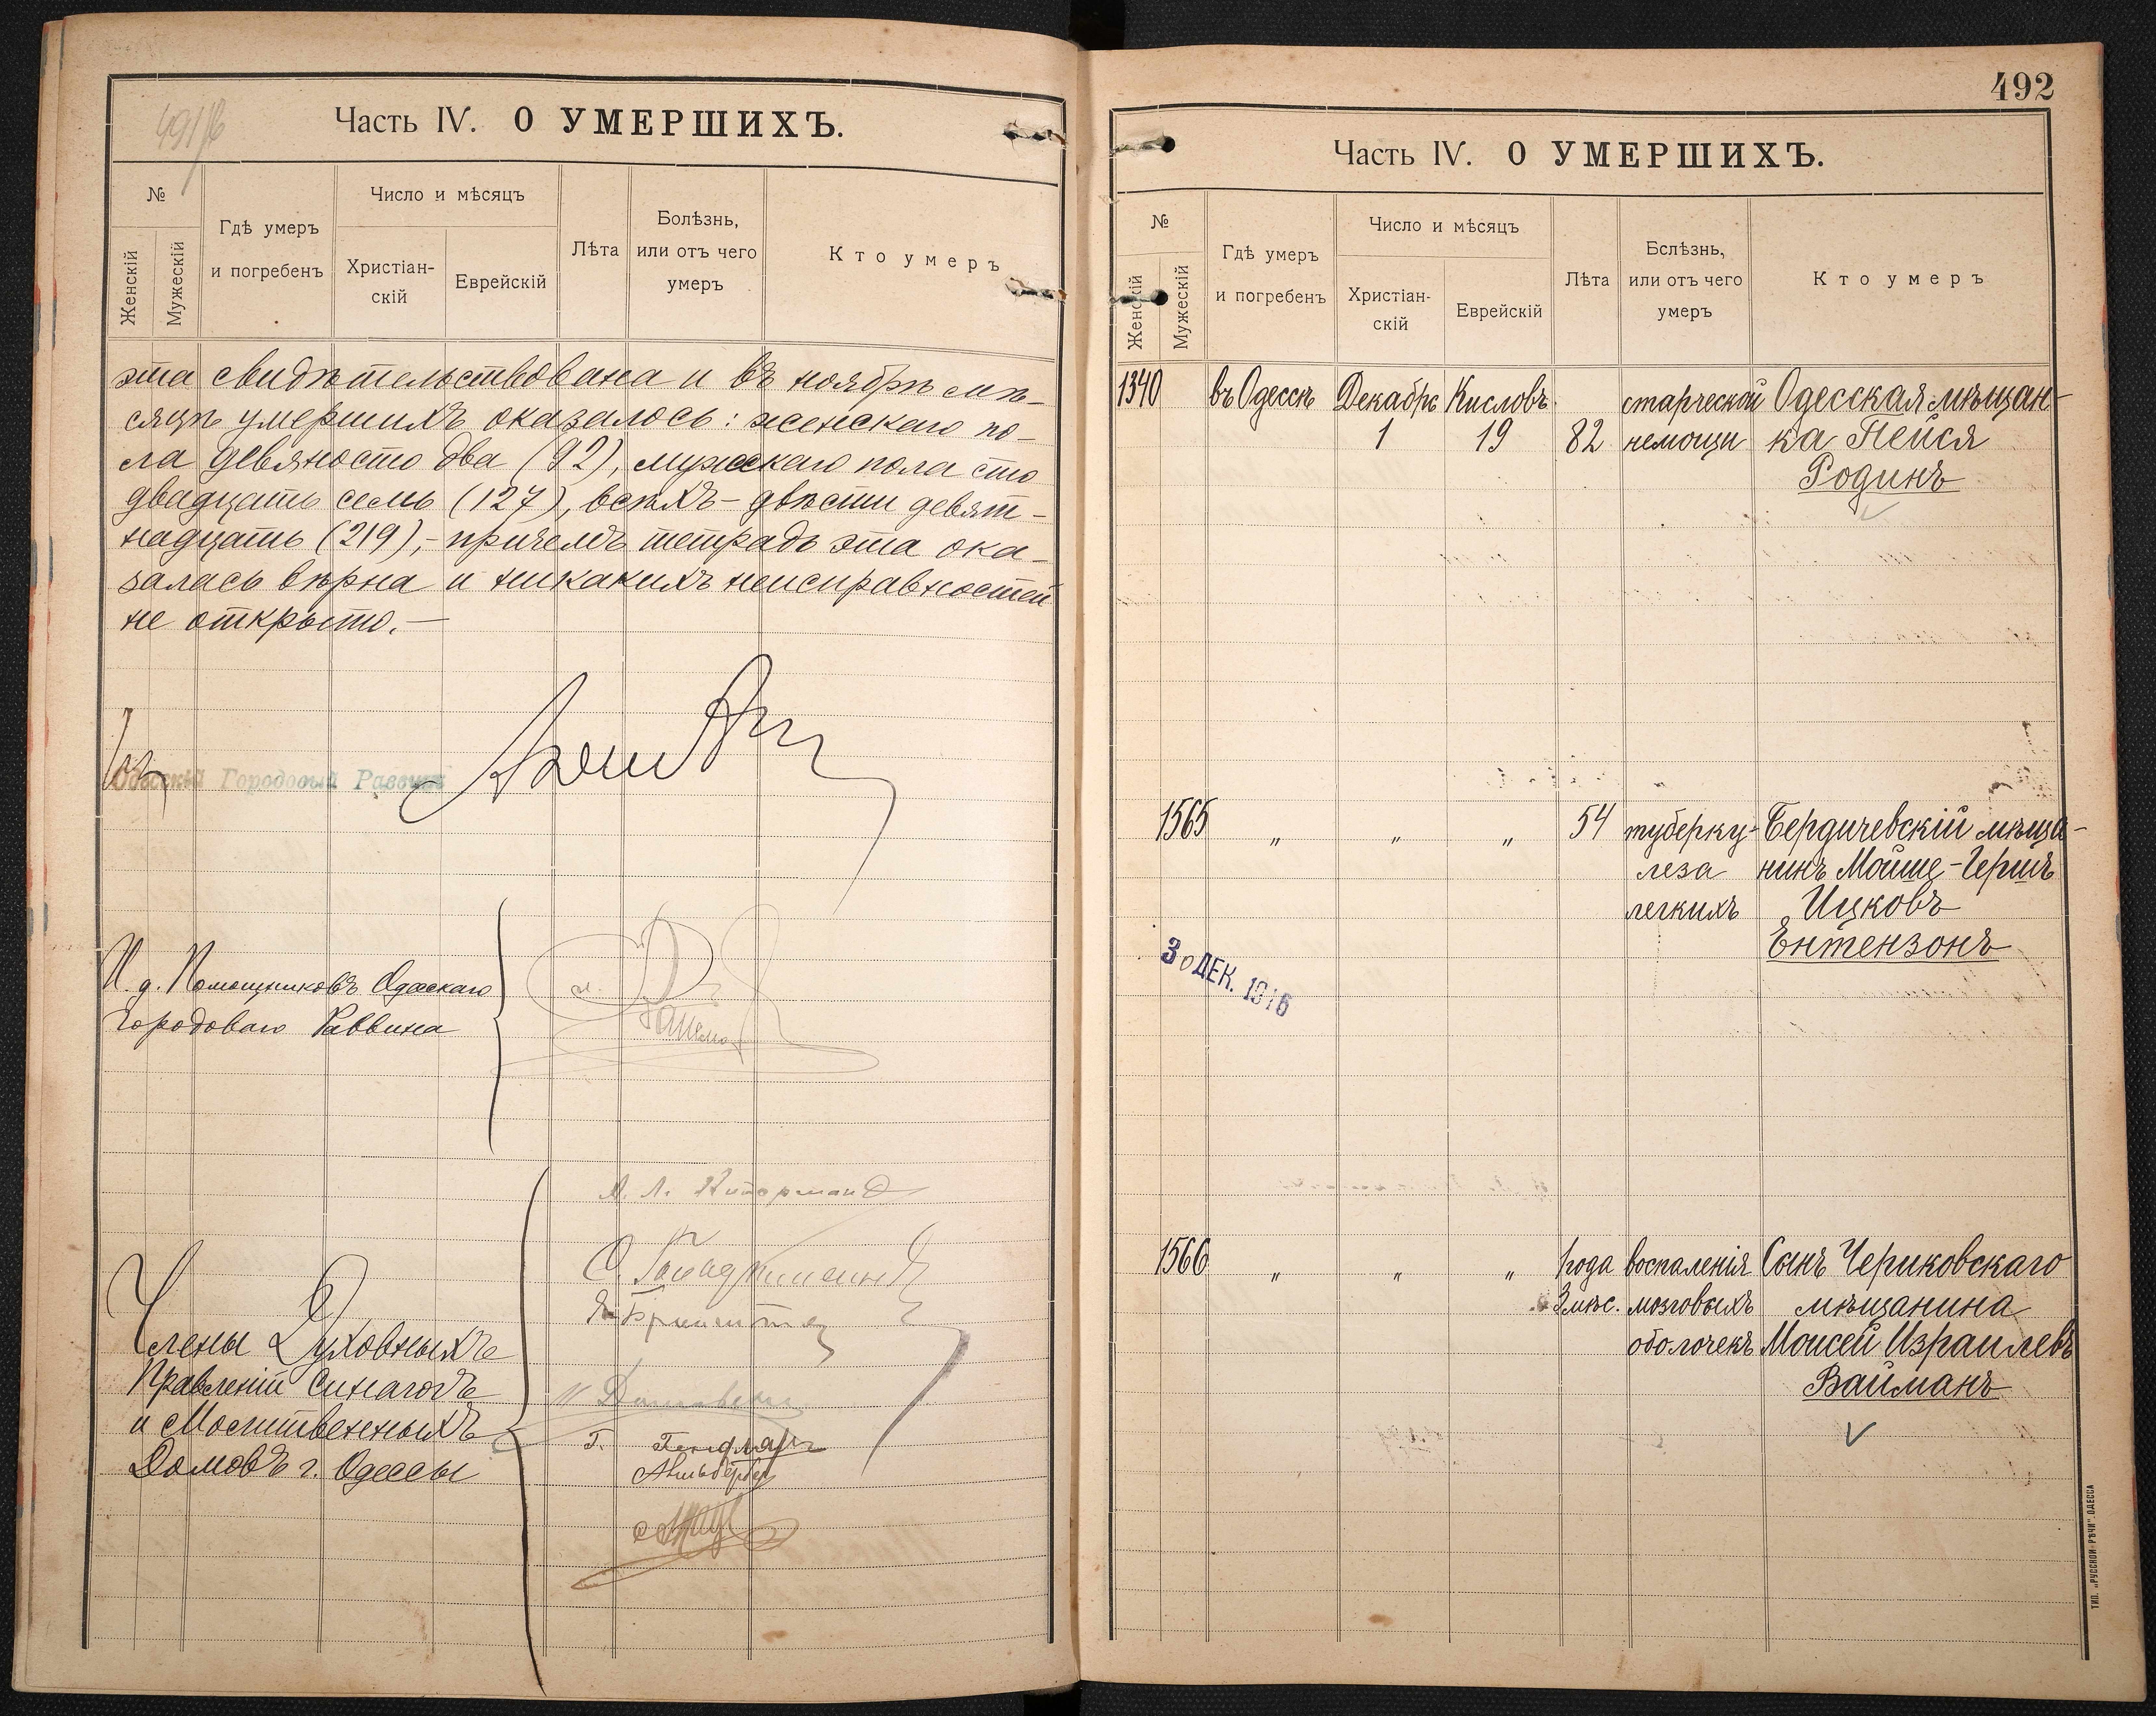 491/б
Часть IV. О УМЕРШИХЪ.
№
Женскій
Мужескій
Гдѣ умеръ
и погребенъ
Число и мѣсяцъ
Христіан-
скій
Еврейскій
Лѣта
Болѣзнь,
или отъ чего
умеръ
Кто умеръ
эта свидѣтельствована и въ ноябрѣ мѣ-
сяцѣ умершихъ оказалось: женскаго по-
ла девяносто два (92), мужскаго пола сто
двадцать семь (127), всѣхъ – двѣсти девят-
надцать (219),– причемъ тетрадь эта ока-
залась вѣрна и никакихъ неисправностей
не открыто.–
Одесскій Городовый Раввинъ
И. д. Помощниковъ Одесскаго
Городоваго Раввина
Члены Духовныхъ
Правленій Синагогъ
и Молитвенныхъ
Домовъ г. Одессы
492
Часть IV. О УМЕРШИХЪ.
№
Женскій
Мужескій
Гдѣ умеръ
и погребенъ
Число и мѣсяцъ
Христіан-
скій
Еврейскій
Лѣта
Бслѣзнь,
или отъ чего
умеръ
Кто умеръ
1340 въ Одессѣ Декабрь Кисловъ старческой Одесская мѣщан-
1 19 82 немощи ка Пейся
Родинъ
1565 „ „ „ 54 туберку- Бердичевскій мѣща-
леза нинъ Мойше-Гершъ
легкихъ Ицковъ
Ентензонъ
30 ДЕК. 1916
1566 „ „ „ 1 года воспаленія Сынъ Чериковскаго
3 мѣс. мозговыхъ мѣщанина
оболочекъ Моисей Израилевъ
Вайманъ
ТИП. „РУССКОЙ РѢЧИ" ОДЕССА